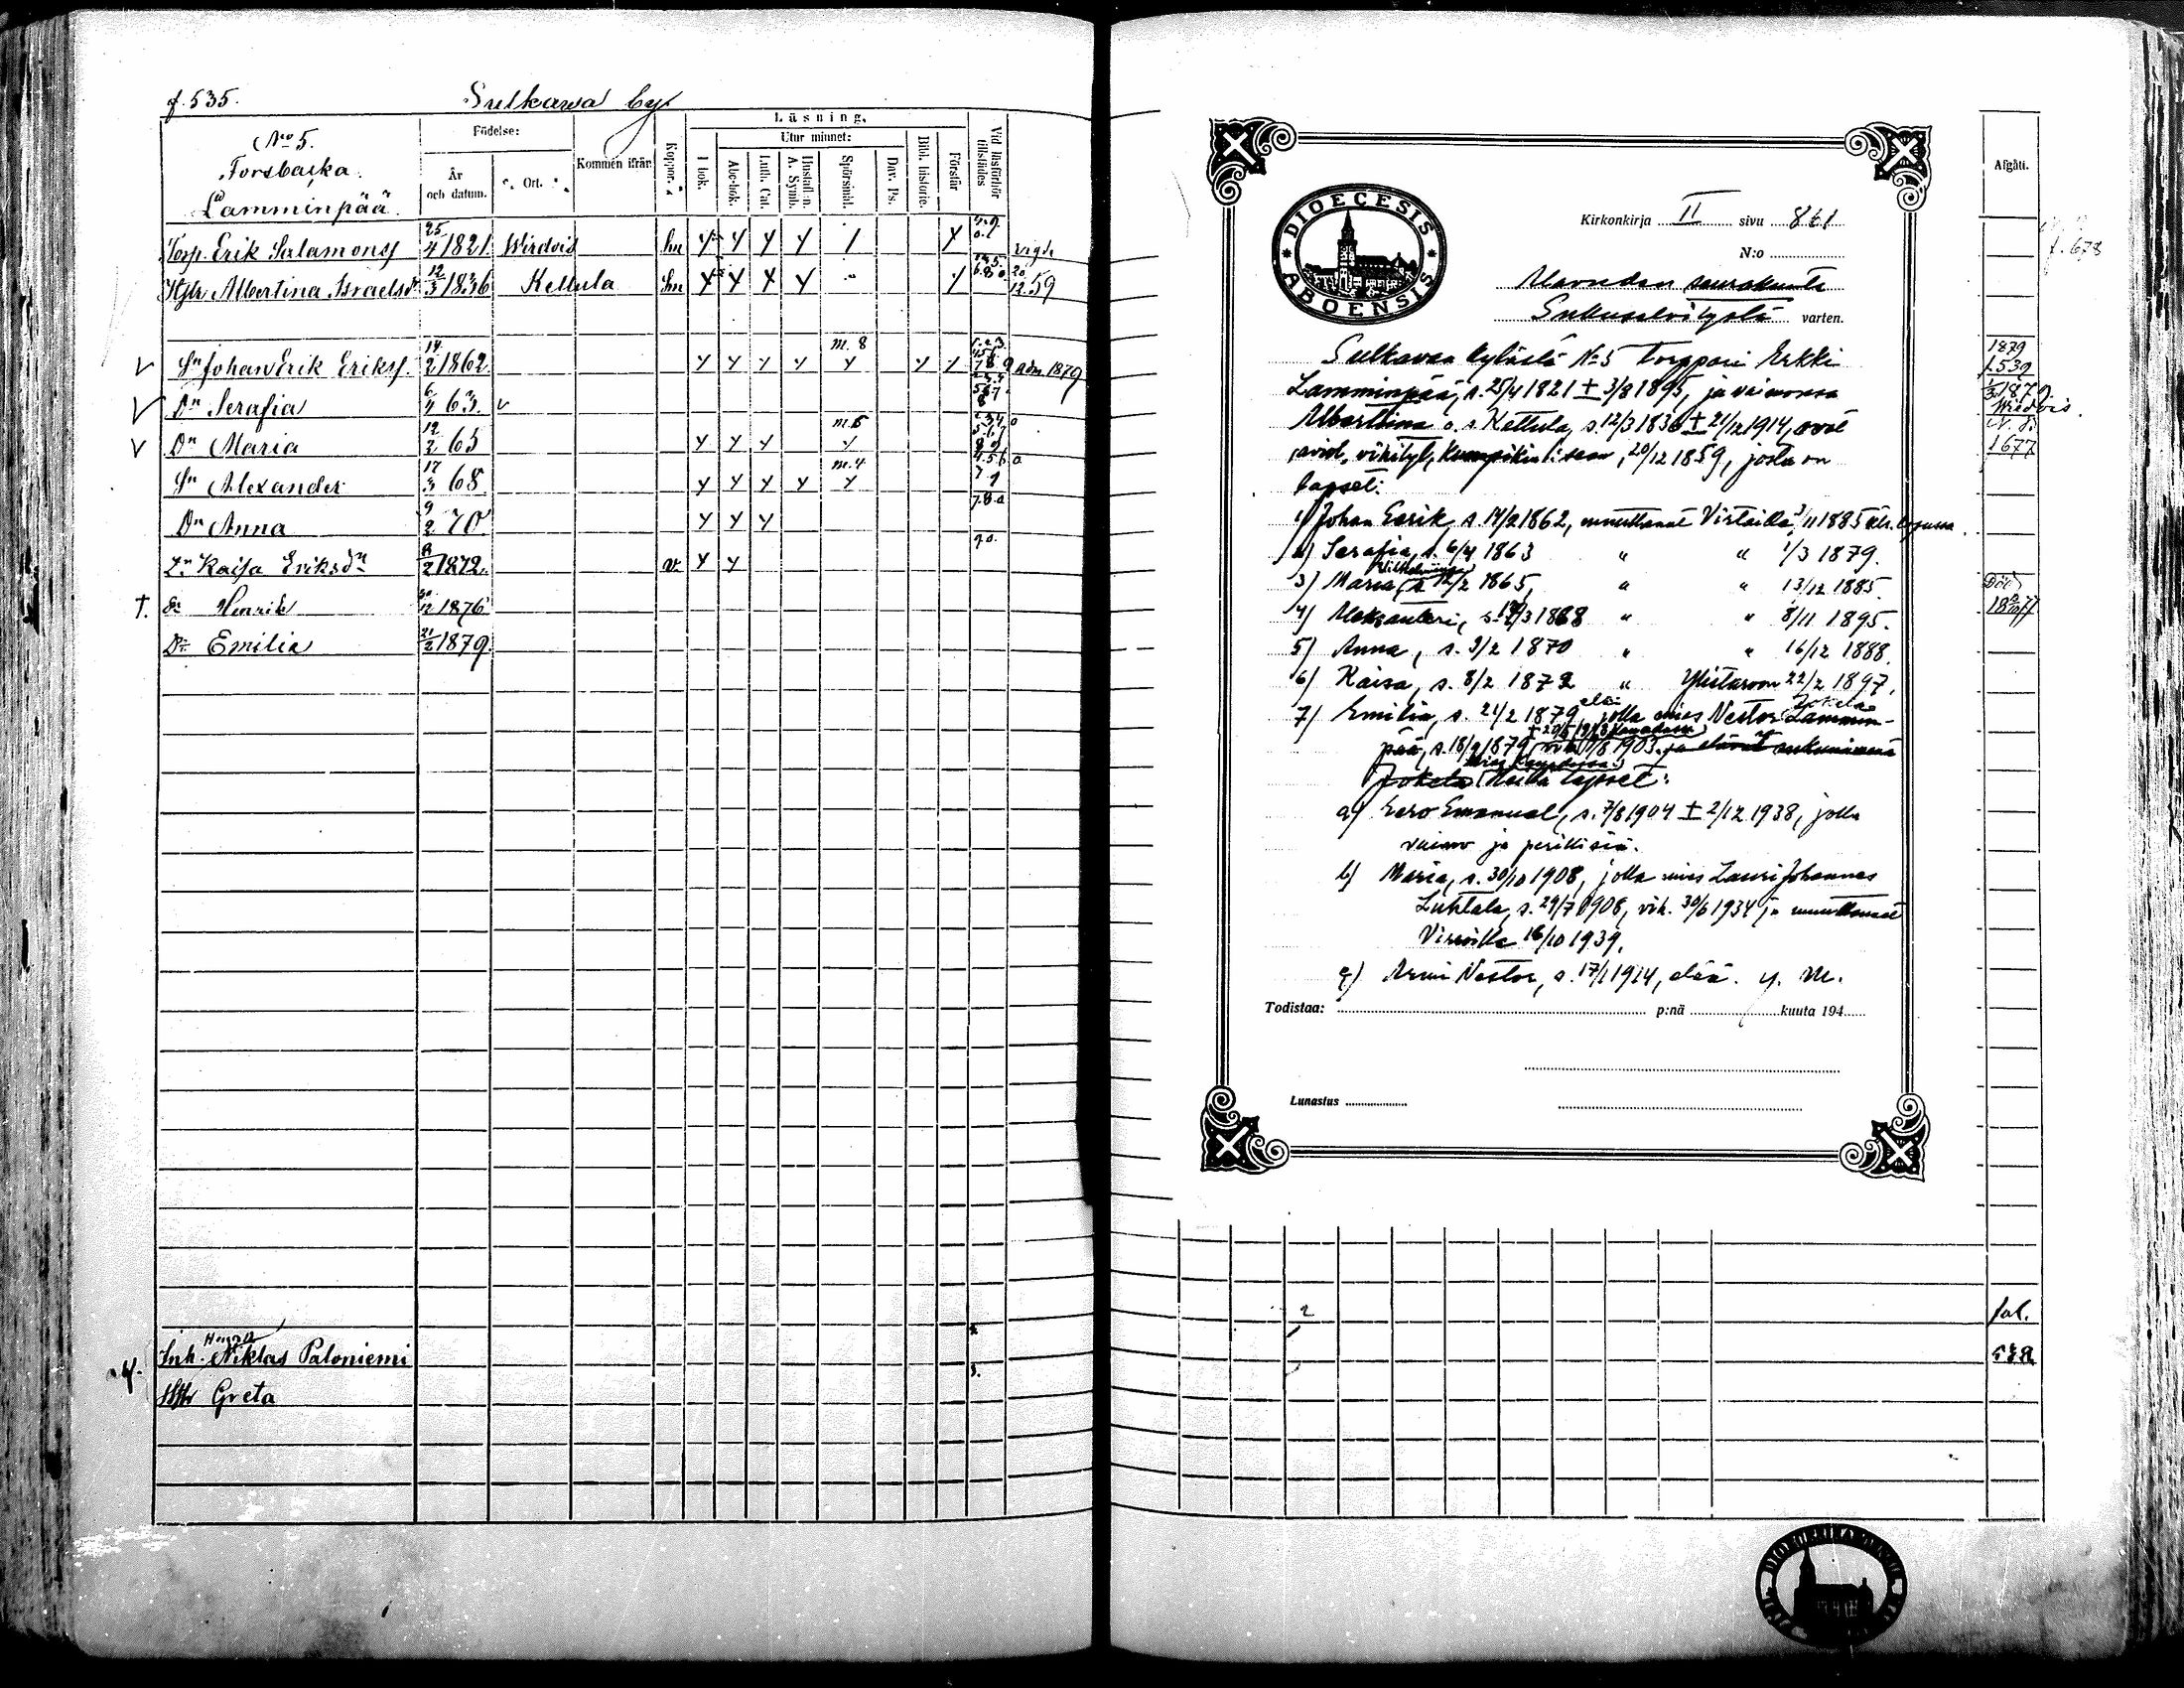 f. 535. Sulkawa by.
No 5.
Torsbacka.
Lamminpää.
Födelse:
År och datum.
Ort.
Kommen ifrån
Koppor.
Läsning.
I bok.
Utur minnet:
Abc-bok.
Luth. Cat.
Hustafl:n. A. Symb.
Spörsmål.
Dav. Ps.
Bibl. historie.
Förstår
Vid läsförhör tillstädes
Torp. Erik Salamonss 25/4 1821. Wirdois
Hstr Albertina Israelsdr 12/3 1836 Kettula 20/12 59
Sn Johan Erik Erikss. 14/2 1862 m. 8 adm 1879
Dr Serafia 6/4 63.
Dr Maria 12/2 65 m. 6
Sn Alexander 17/3 68. m. 4.
Dr Anna 9/2 70
Dr Kaisa Eriksdr 8/2 1872. v.
†. Sn Henrik 1876
Dr Emilia 21/2 1879.
Inh. Niklas Paloniemi
Hstr Greta
DIOECESIS ABOENSIS
Kirkonkirja II sivu 861
N:o
Alavuden seurakunta
Sukuselvitystä varten.
Sulkavan kylästä No 5 Torppari Erkki
Lamminpää, s. 25/4 1821 ± 3/8 1895, ja vaimonsa
Albertiina o. s. Kettula, s. 12/3 1836 ± 21/12 1914, ovat
aviol. vihityt, 20/12 1859, josta on
lapset:
1) Johan Eerik s. 14/2 1862, muuttanut Virtoilla 3/11 1885
2) Serafia, s. 6/4 1863 " " 1/3 1879.
3) Maria Vilhelmiina s. 12/2 1865, " " 13/12 1885.
4) Aleksanteri, s. 17/3 1868 " " 8/11 1895.
5) Anna, s. 9/2 1870 " " 16/12 1888.
6) Kaisa, s. 8/2 1872 " Ylistaroon 22/2 1897.
7) Emilia, s. 21/2 1879, jolla mies Nestor Jokela Lammin-
pää, s. 18/9 1879, 1903. ja elävät sukunimenä
Jokela Heillä lapset:
a) Eero Emanuel, s. 7/8 1904 ± 2/12 1938, jolla
vaimo ja perillisiä.
b) Maria, s. 30/10 1908, jolla mies Lauri Johannes
Luhtala, s. 29/7 1908, vih. 30/6 1934 ja muuttaneet
Virroille 16/10 1939.
c) Armi Nestor, s. 17/1 1914, elää. y. m.
Todistaa: p:nä kuuta 194
Lunastus
Afgått.
f. 678
1879
f. 539
1879
Wirdois.
1677
Död
fol.
538